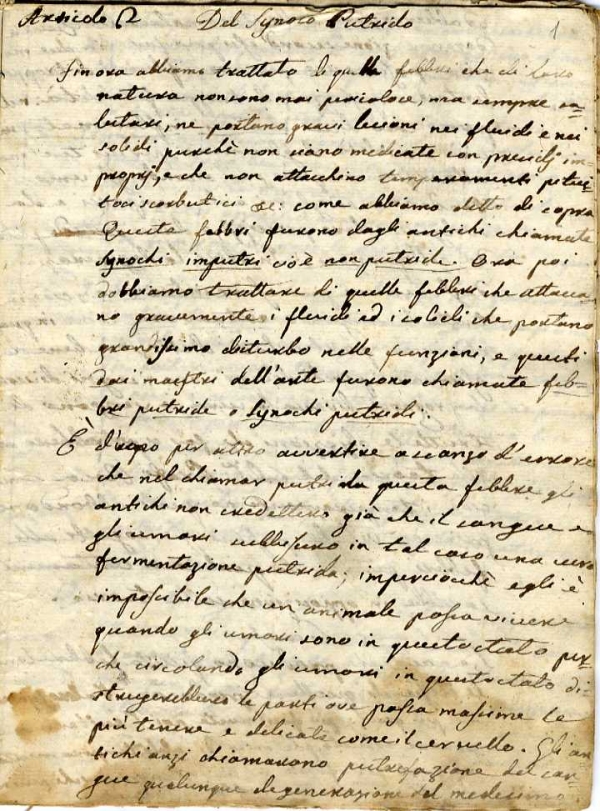 Articolo 2 Del Synoco Putrido 1
Finora abbiamo trattato di quelle febbri che di loro
natura non sono mai pericolose, ma sempre sa=
lutari, ne portano gravi lesioni nei fluidi e nei
solidi purchè non siano medicate con presidj im=
proprj, e che non attacchino temperamenti pitui=
tosi scorbutici &c: come abbiamo detto di sopra
Queste febbri furono dagli antichi chiamate
Synochi imputri cioè non putride. Ora poi
dobbiamo trattare di quelle febbri che attacca
no gravemente i fluidi ed i solidi che portano
grandissimo disturbo nelle funzioni, e questi
dai maestri dell'arte furono chiamate feb=
bri putride o Synochi putridi.
È d'uopo per altro avvertire a scanzo d'errore
che nel chiamar putrida questa febbre gli
antichi non credettero già che il sangue e
gli umori subissero in tal caso una vera
fermentazione putrida; imperciocchè egli è
impossibile che un animale possa vivere
quando gli umori sono in questo stato per
che circolando gli umori in questo stato di
strugerebbero le parti ove passa massime le
più tenere e delicate come il cervello. Gli an
tichi anzi chiamarono putrefazione del san
gue qualunque degenerazione del medesimo